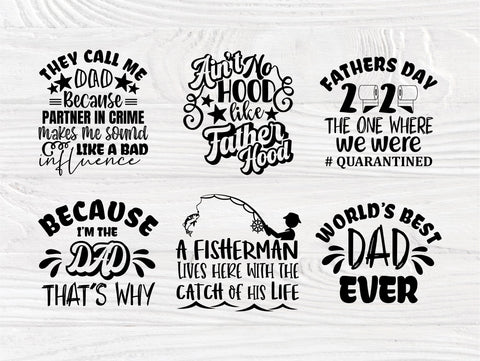 THEY CALL ME
DAD
Because
PARTNER IN CRIME
makes me sound
LIKE A BAD
influence
Ain't No
HOOD
like
Father
Hood
FATHERS DAY
2020
THE ONE WHERE
we were
# QUARANTINED
BECAUSE
I'M THE
DAD
THAT'S WHY
A FISHERMAN
LIVES HERE WITH THE
CATCH OF HIS LIFE
WORLD'S BEST
DAD
EVER